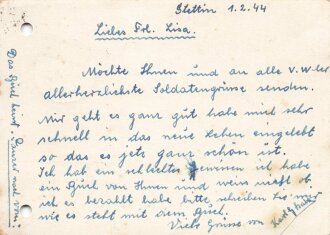 Stettin 1.2.44
Liebes Frl. Lisa.
Möchte Ihnen und an alle V.W-ler
allerherzlichste Soldatengrüsse senden.
Mir geht es ganz gut habe mich sehr
schnell in das neue Leben eingelebt
so das es jetz ganz schön ist.
Ich hab ein ich habe
ein von Ihnen und weiss nicht ob
ich es bezahlt habe bitte schreiben Sie
wie es steht mit dem
Viele Grüsse von
Das